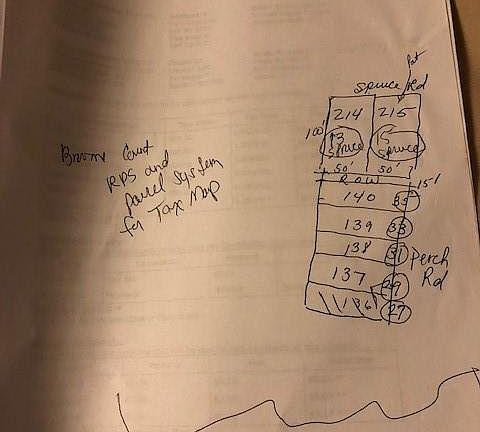 Spruce Rd
214 215
100'
13 15
Spruce Spruce
50' 50'
ROW
15'
140 35
139 33
138 31
Perch
Rd
137 29
136 27
RPS and
Parcel System
for Tax Map